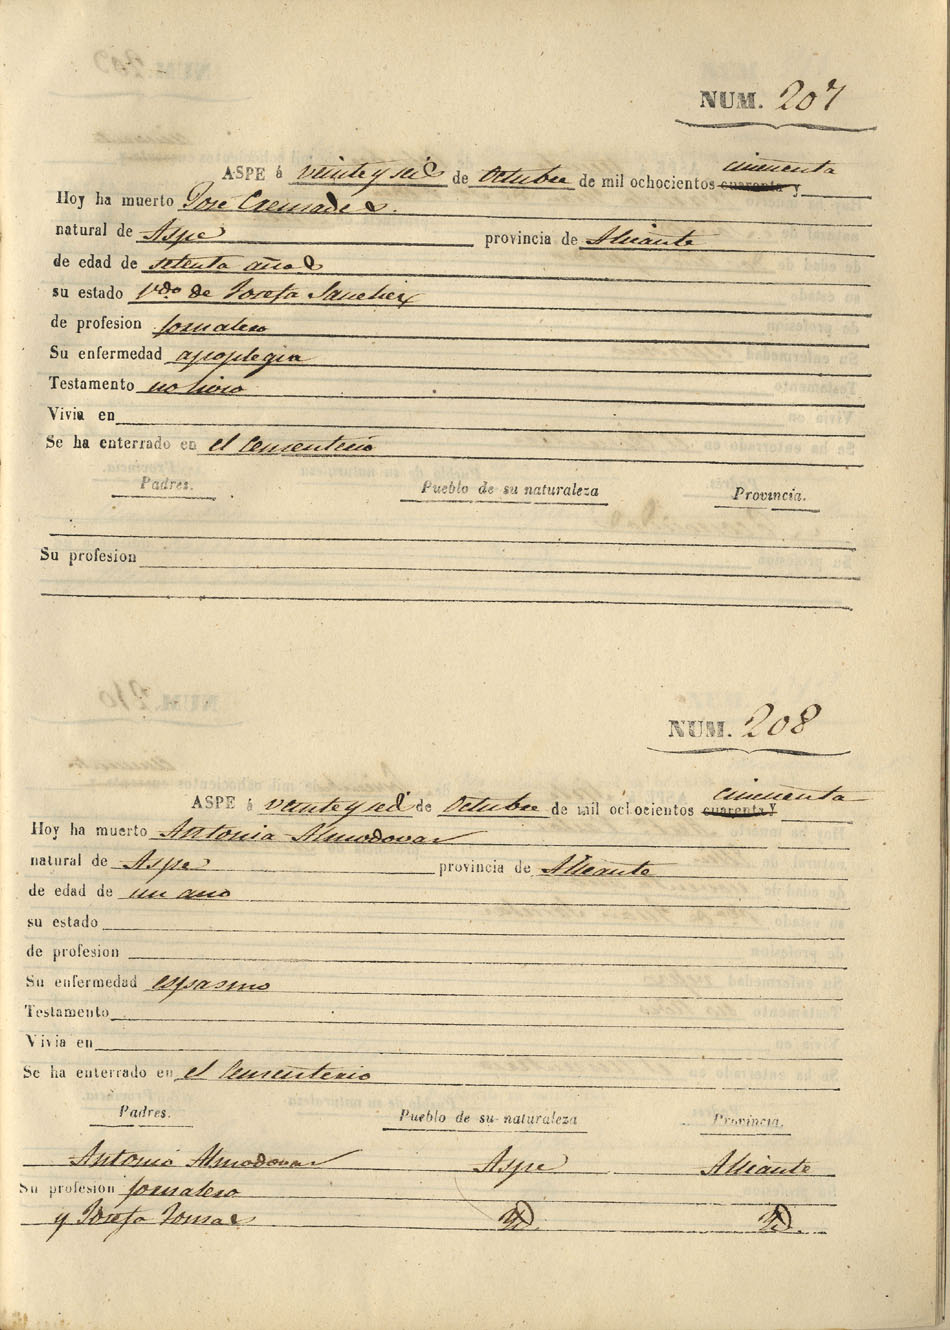 NUM. 207
cincuenta
ASPE á veinte y seis de Octubre de mil ochocientos cuarenta y
Hoy ha muerto Jose Cremades.
natural de Aspe provincia de Alicante
de edad de setenta años
su estado Vdo de Josefa Sanchez
de profesion jornalero
Su enfermedad apoplegia
Testamento no hizo
Vivia en
Se ha enterrado en el Cementerio
Padres. Pueblo de su naturaleza Provincia.
Su profesion
NUM. 208
cincuenta
ASPE á veinte y seis de Octubre de mil ochocientos cuarenta y
Hoy ha muerto Antonia Almodovar
natural de Aspe provincia de Alicante
de edad de un año
su estado
de profesion
Su enfermedad espasmo
Testamento
Vivia en
Se ha enterrado en el Cementerio
Padres. Pueblo de su naturaleza Provincia.
Antonio Almodovar Aspe Alicante
Su profesion jornalero
y Josefa Tomas Yd. Yd.